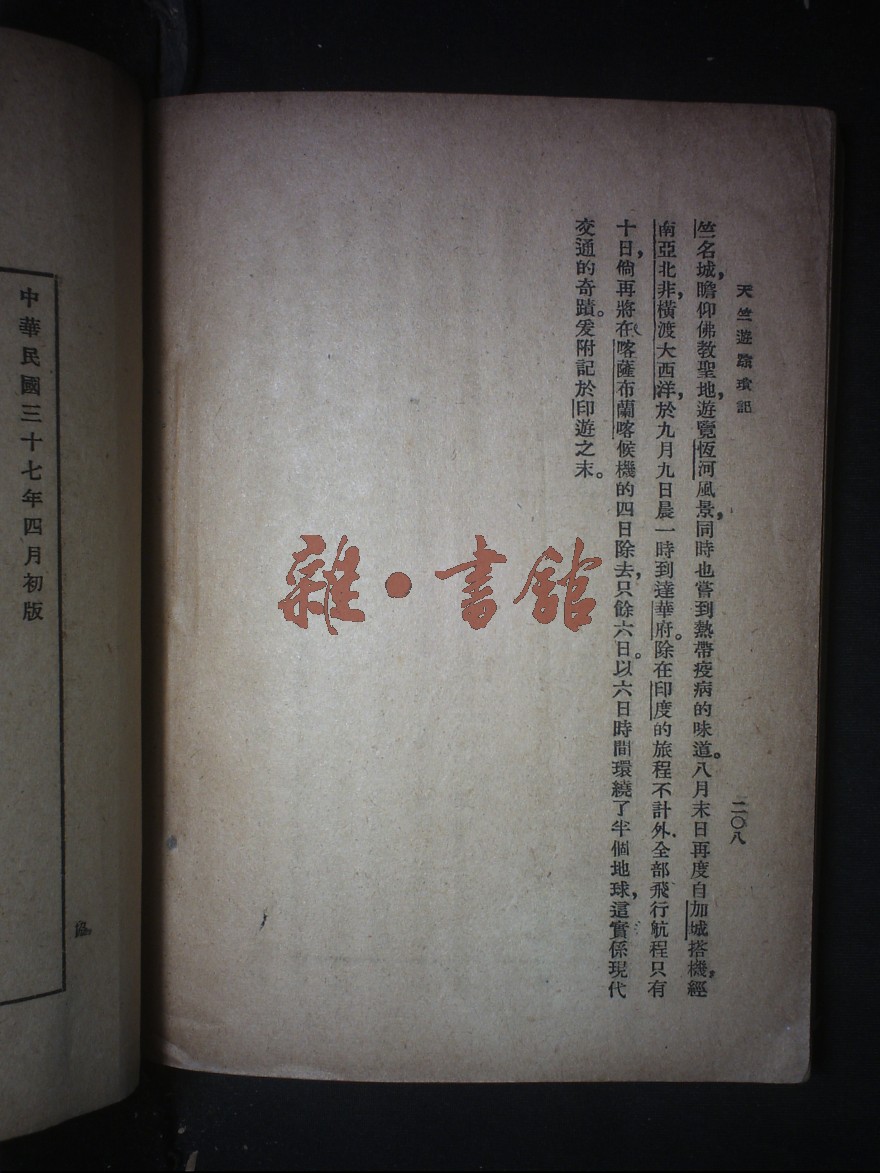 天竺遊蹤瑣記
二〇八
竺名城,瞻仰佛教聖地,遊覽恆河風景,同時也嘗到熱帶疫病的味道。八月末日再度自加城搭機,經
南亞北非,橫渡大西洋,於九月九日晨一時到達華府。除在印度的旅程不計外,全部飛行航程只有
十日,倘再將在喀薩布蘭喀候機的四日除去,只餘六日。以六日時間環繞了半個地球,這實係現代
交通的奇蹟。爰附記於印遊之末。
雜·書舘
中華民國三十七年四月初版